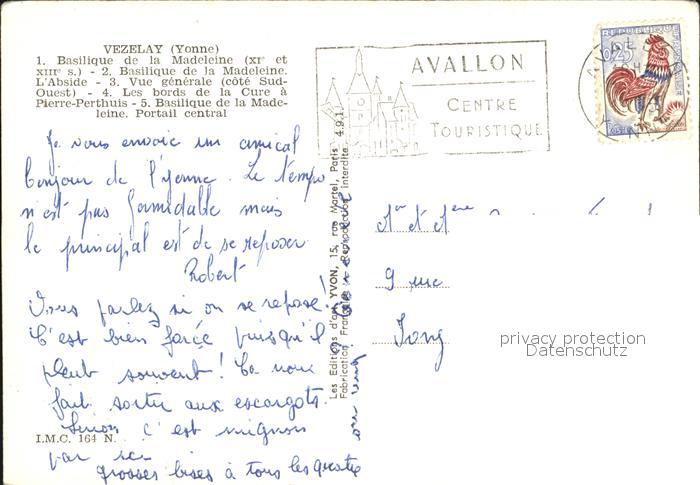 VEZELAY (Yonne)
1. Basilique de la Madeleine (XIe et
XIIIe s.) - 2. Basilique de la Madeleine.
L'Abside - 3. Vue générale (côté Sud-
Ouest) - 4. Les bords de la Cure à
Pierre-Perthuis - 5. Basilique de la Made-
leine. Portail central
Je vous envoie un amical
bonjour de l'Yonne. Le temps
n'est pas formidable mais
le principal est de se reposer
Robert
Vous parlez si on se repose!
C'est bien forcé puisqu'il
pleut souvent! Ca nous
fait sortir aux escargots.
Sinon c'est mignon
par
grosses bises à tous les quatre
I.M.C. 164 N.
Les Editions d'art YVON, 15, rue Martel, Paris
Fabrication Française - Reproduction interdite
4.91
AVALLON
CENTRE
TOURISTIQUE
0,25
Mr et Mme
9 rue
Jouy
privacy protection
Datenschutz